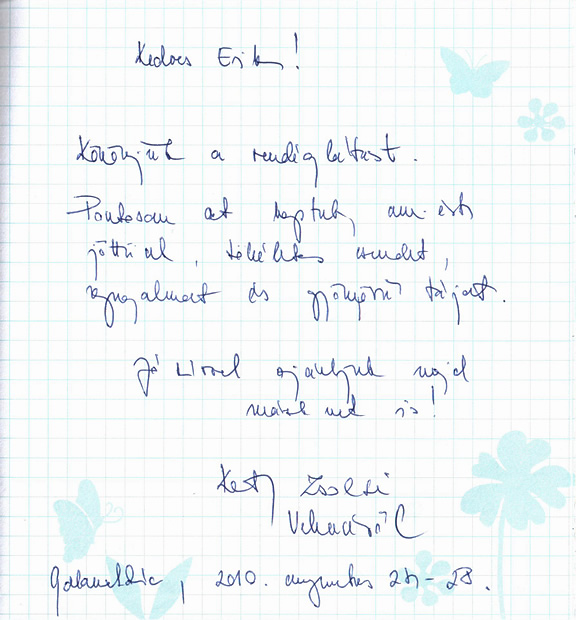 Kedves Erika!
Köszönjük a vendéglátást.
Pontosan azt kaptuk, amiért
jöttünk, tökéletes csendet,
nyugalmat és gyönyörű tájat.
Jó szívvel ajánljuk majd
másoknak is!
Kati Zsolti
2010. augusztus 25-28.